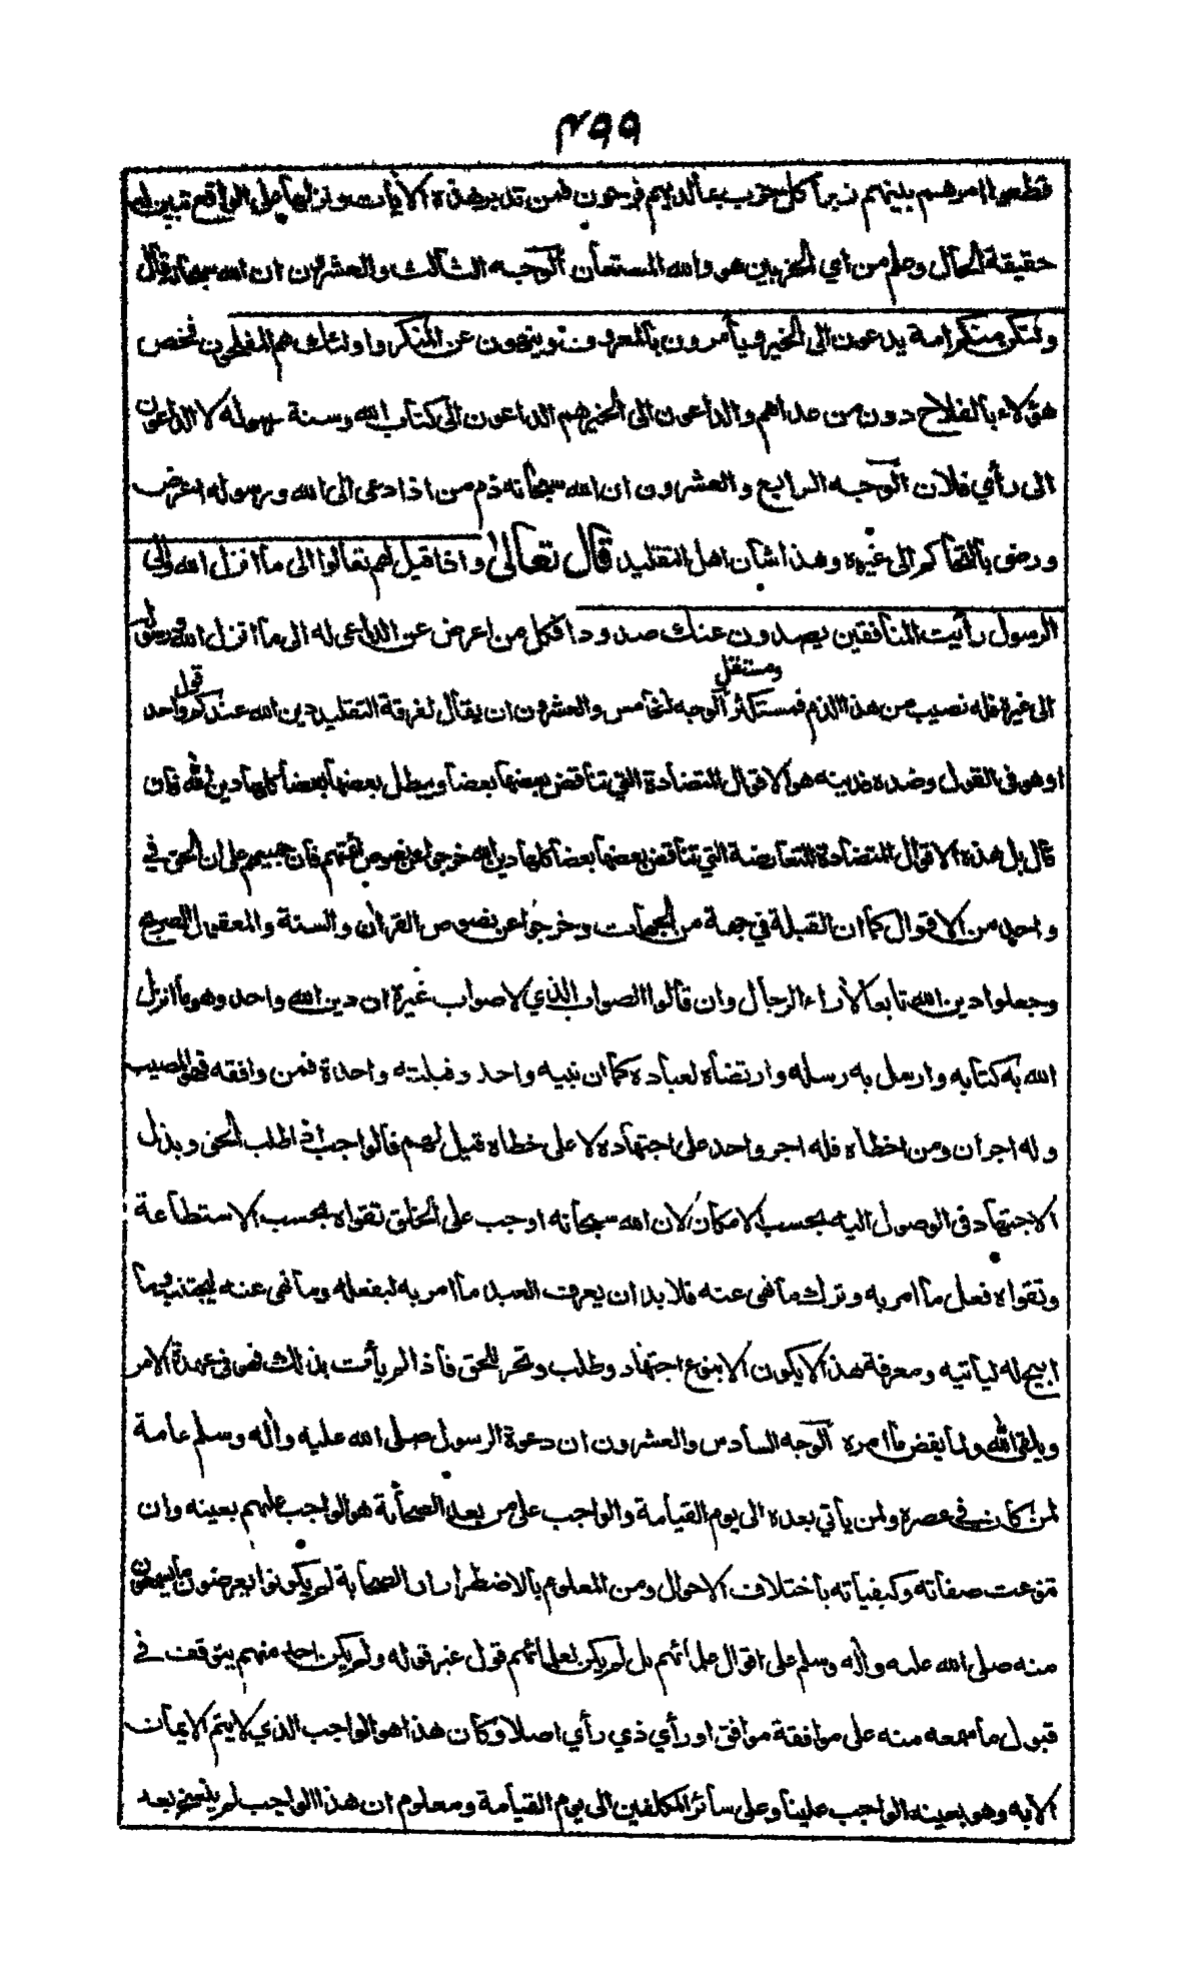 ٤٩٩
فتقطعوا امرهم بينهم زبرا كل حزب بما لديهم فرحون فمن تدبر هذه الأيات ونزلها على الواقع تبين له
حقيقة الحال وعلم من اي الحزبين هو والله المستعان الوجه الثالث والعشرون ان الله سبحانه قال
ولتكن منكم امة يدعون الى الخير ويأمرون بالمعروف وينهون عن المنكر واولئك هم المفلحون فخص
هؤلاء بالفلاح دون من عداهم والداعون الى الخير هم الداعون الى كتاب الله وسنة رسوله لا الداعون
الى رأي فلان الوجه الرابع والعشرون ان الله سبحانه ذم من اذا دعى الى الله ورسوله اعرض
ورضى بالتحاكم الى غيره وهذا شأن اهل التقليد قال تعالى واذا قيل لهم تعالوا الى ما انزل الله والى
الرسول رأيت المنافقين يصدون عنك صدودا فكل من اعرض عن الداعى له الى ما انزل الله ورسوله
الى غيره فله نصيب من هذا الذم فمستكثر ومستقل الوجه الخامس والعشرون ان يقال لفرقة التقليد دين الله عندكم قول واحد
او هو فى القول وضده فدينه هو الاقوال المتضادة التي تناقض بعضها بعضا ويبطل بعضها بعضا كلها دين الله فان
قال بل هذه الاقوال المتضادة المتعارضة التي تناقض بعضها بعضا كلها دين الله خرجوا عن نصوص ائمتهم فان جميعهم على ان الحق في
واحد من الاقوال كما ان القبلة في جهة من الجهات وخرجوا عن نصوص القرأن والسنة والمعقول الصريح
وجعلوا دين الله تابعا لأراء الرجال وان قالوا الصواب الذي لا صواب غيره ان دين الله واحد وهو ما انزل
الله به كتابه وارسل به رسله وارتضاه لعباده كما ان نبيه واحد وقبلته واحدة فمن وافقه فهو المصيب
وله اجران ومن اخطاه فله اجر واحد على اجتهاده لا على خطاه قيل لهم فالواجب اذا طلب الحق وبذل
الاجتهاد فى الوصول اليه بحسب الامكان لان الله سبحانه اوجب على الخلق تقواه بحسب الاستطاعة
وتقواه فعل ما امر به وترك ما نهى عنه فلا بد ان يعرف العبد ما امر به ليفعله وما نهى عنه ليجتنبه وما
ابيح له ليأتيه ومعرفة هذا لا يكون الا بنوع اجتهاد وطلب وتحر للحق فاذا لم يأت بذلك فهو فى عهدة الامر
ويلقى الله ولما يقض ما امره الوجه السادس والعشرون ان دعوة الرسول صلى الله عليه وأله وسلم عامة
لمن كان في عصره ولمن يأتي بعده الى يوم القيامة والواجب على من بعد الصحابة هو الواجب عليهم بعينه وان
تنوعت صفاته وكيفياته باختلاف الاحوال ومن المعلوم بالاضطرار ان الصحابة لم يكونوا يعرضون ما يسمعون
منه صلى الله عليه وأله وسلم على اقوال علمائهم بل لم يكن لعلمائهم قول غير قوله ولم يكن احد منهم يتوقف في
قبول ما سمعه منه على موافقة موافق او رأي ذي رأي اصلا وكان هذا هو الواجب الذي لا يتم الايمان
الا به وهو بعينه الواجب علينا وعلى سائر المكلفين الى يوم القيامة ومعلوم ان هذا الواجب لم ينسخ بعد